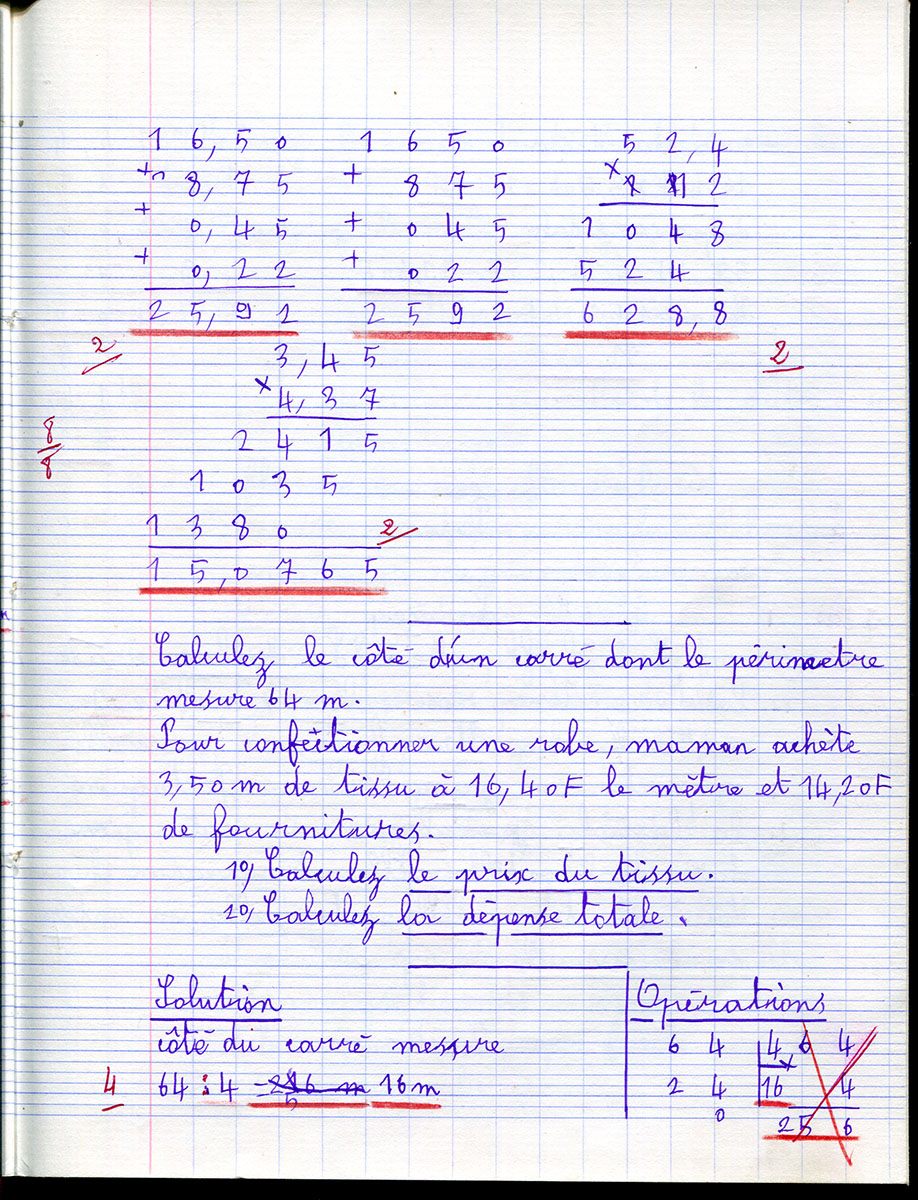 1 6,5 0   1 6 5 0   5 2,4
+ 8,7 5   + 8 7 5   × 1 2
+ 0,4 5   + 0 4 5   1 0 4 8
+ 0,2 2   + 0 2 2   5 2 4
2 5,9 2   2 5 9 2   6 2 8,8
2   2
3,4 5
× 4,3 7
8/8
2 4 1 5
1 0 3 5
1 3 8 0   2
1 5,0 7 6 5
Calculez le côté d'un carré dont le périmetre
mesure 64 m.
Pour confectionner une robe, maman achète
3,50 m de tissu à 16,40F le mètre et 14,20F
de fournitures.
1°) Calculez le prix du tissu.
2°) Calculez la dépense totale.
Solution   Opérations
côté du carré mesure   6 4 4 6 4
4   64 : 4 = 256 m 16 m   2 4 16 × 4
0   2 5 6